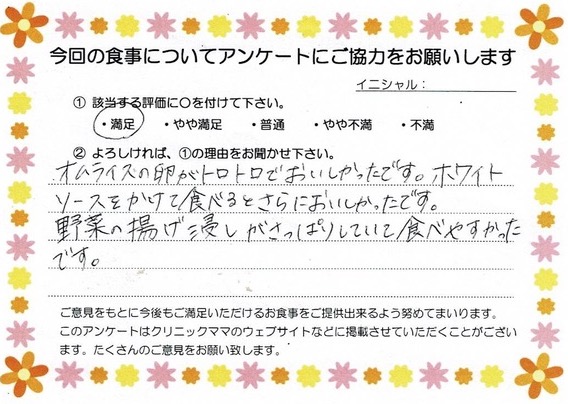 今回の食事についてアンケートにご協力をお願いします
イニシャル：
① 該当する評価に○を付けて下さい。
・満足 ・やや満足 ・普通 ・やや不満 ・不満
② よろしければ、①の理由をお聞かせ下さい。
オムライスの卵がトロトロでおいしかったです。ホワイト
ソースをかけて食べるとさらにおいしかったです。
野菜の揚げ浸しがさっぱりしていて食べやすかった
です。
ご意見をもとに今後もご満足いただけるお食事をご提供出来るよう努めてまいります。
このアンケートはクリニックママのウェブサイトなどに掲載させていただくことがござい
ます。たくさんのご意見をお願い致します。